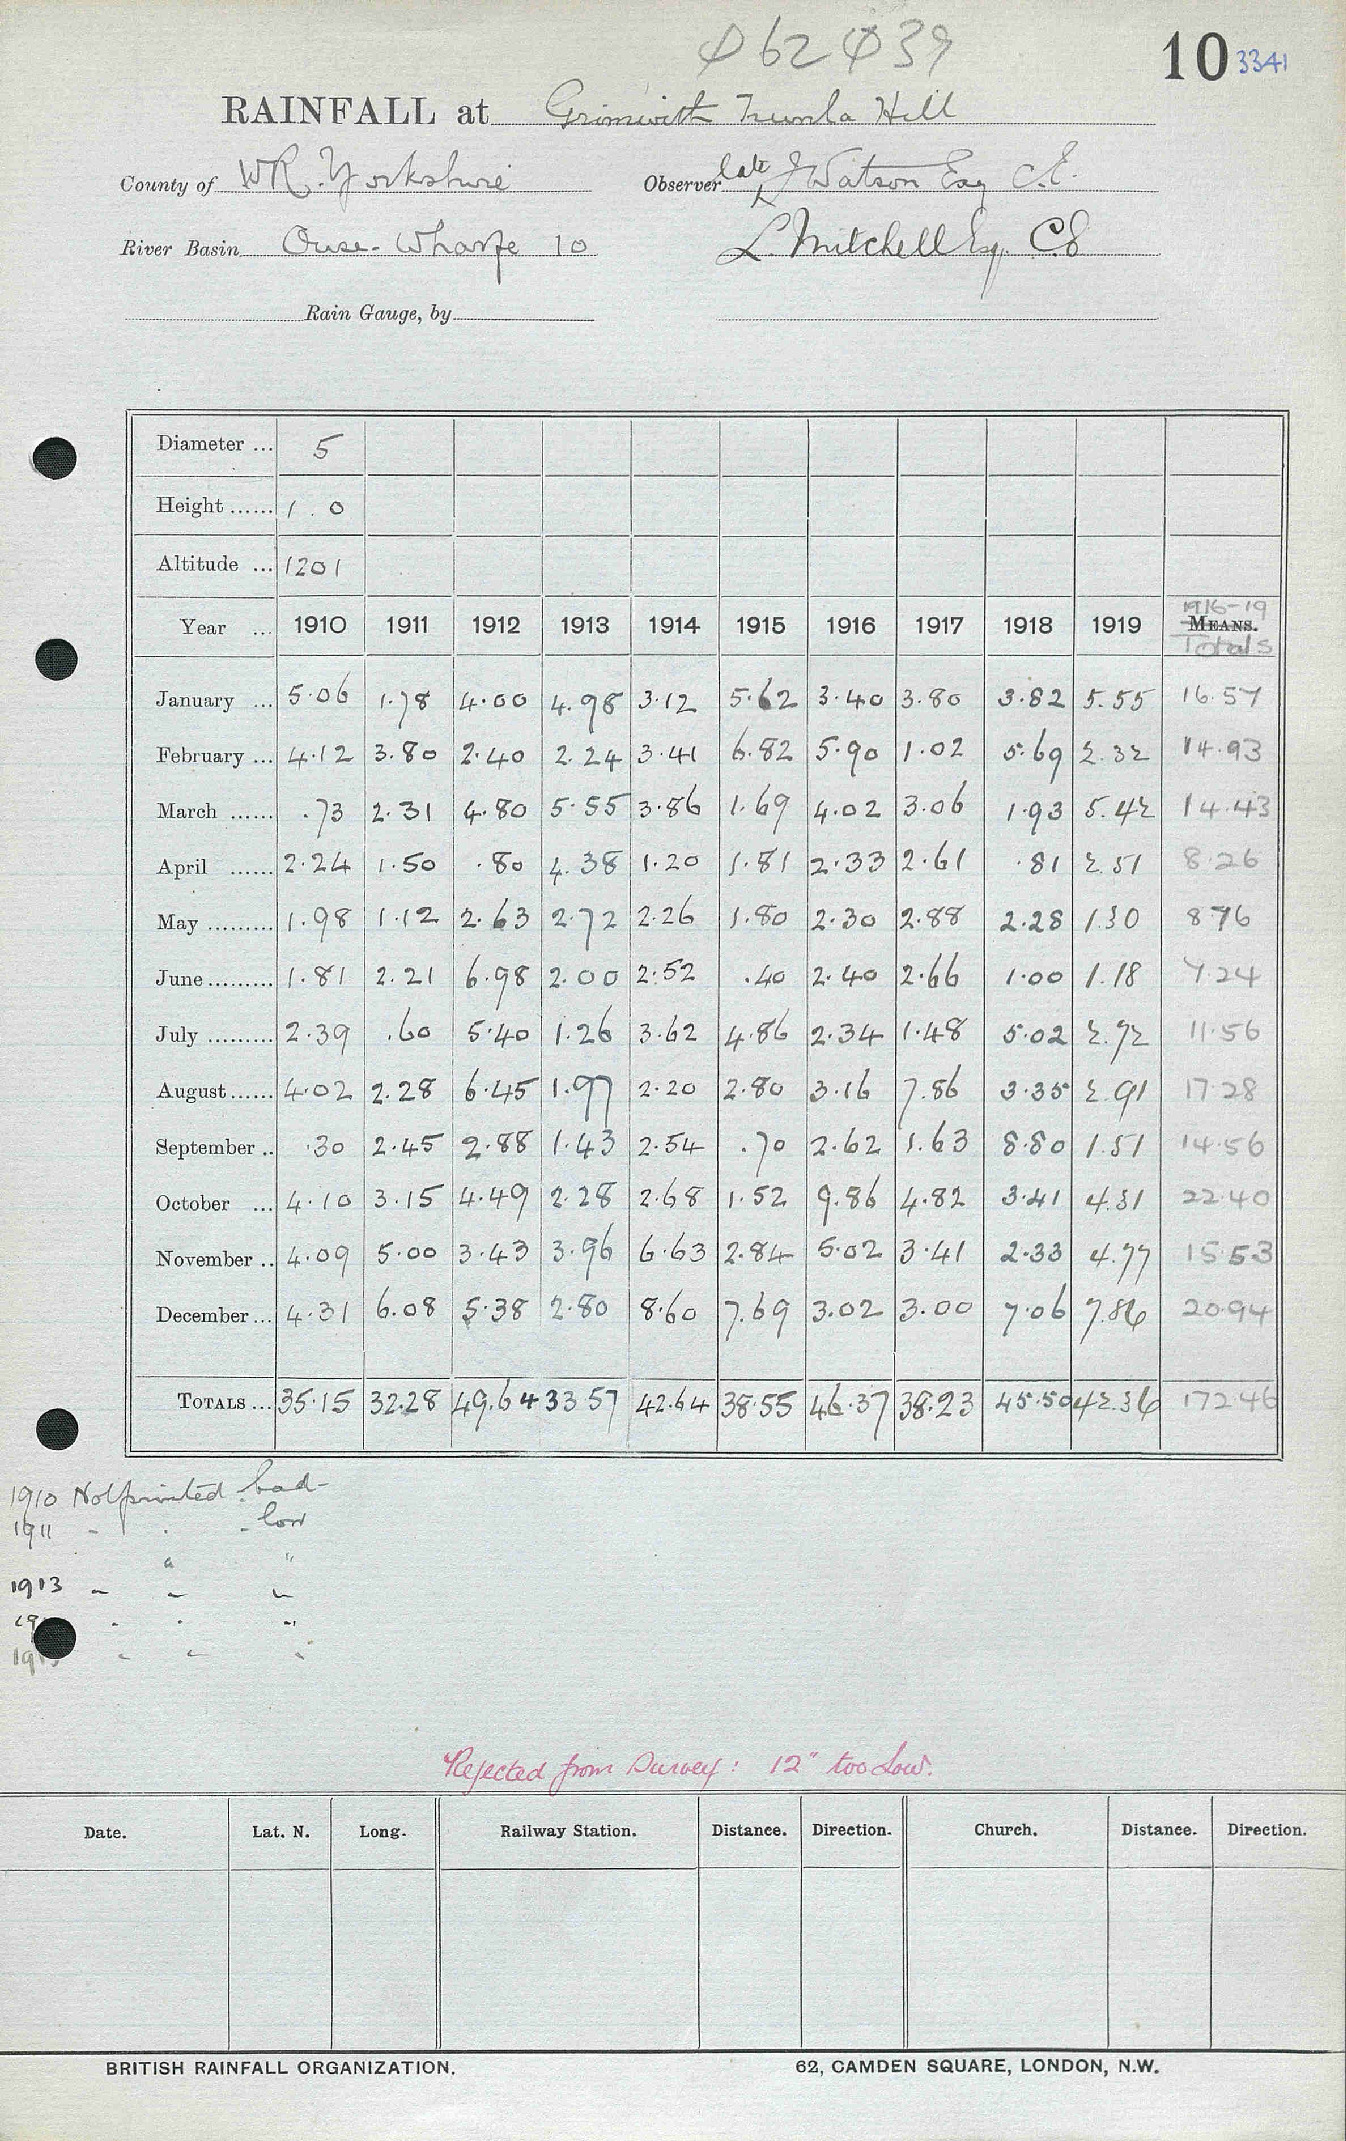 Φ62 Φ39
10 3341
RAINFALL at Grimwith Trunla Hill
County of WR. Yorkshire Observer late J Watson Esq C.E.
River Basin Ouse-Wharfe 10 L. Mitchell Esq. C.E
Rain Gauge, by
Diameter ... 5
Height ...... 1 . 0
Altitude ... 1201
1916-19
Year ... 1910 1911 1912 1913 1914 1915 1916 1917 1918 1919 MEANS.
Totals
January ... 5.06 1.78 4.00 4.98 3.12 5.62 3.40 3.80 3.82 5.55 16.57
February ... 4.12 3.80 2.40 2.24 3.41 6.82 5.90 1.02 5.69 2.32 14.93
March ...... .73 2.31 4.80 5.55 3.86 1.69 4.02 3.06 1.93 5.42 14.43
April ...... 2.24 1.50 .80 4.38 1.20 1.81 2.33 2.61 .81 2.51 8.26
May ......... 1.98 1.12 2.63 2.72 2.26 1.80 2.30 2.88 2.28 1.30 8 76
June ......... 1.81 2.21 6.98 2.00 2.52 .40 2.40 2.66 1.00 1.18 7.24
July ......... 2.39 .60 5.40 1.26 3.62 4.86 2.34 1.48 5.02 2.72 11.56
August ...... 4.02 2.28 6.45 1.97 2.20 2.80 3.16 7.86 3.35 2.91 17.28
September .. .30 2.45 2.88 1.43 2.54 .70 2.62 1.63 8.80 1.51 14.56
October ... 4.10 3.15 4.49 2.28 2.68 1.52 9.86 4.82 3.41 4.31 22.40
November .. 4.09 5.00 3.43 3.96 6.63 2.84 5.02 3.41 2.33 4.77 15.53
December ... 4.31 6.08 5.38 2.80 8.60 7.69 3.02 3.00 7.06 7.86 20.94
TOTALS ... 35.15 32.28 49.64 33 57 42.64 38.55 46.37 38.23 45.50 42.36 172.46
1910 Not printed. bad
1911 - . - low
" "
1913 - - -
Rejected from Survey: 12" too low.
Date. Lat. N. Long. Railway Station. Distance. Direction. Church. Distance. Direction.
BRITISH RAINFALL ORGANIZATION. 62, CAMDEN SQUARE, LONDON, N.W.